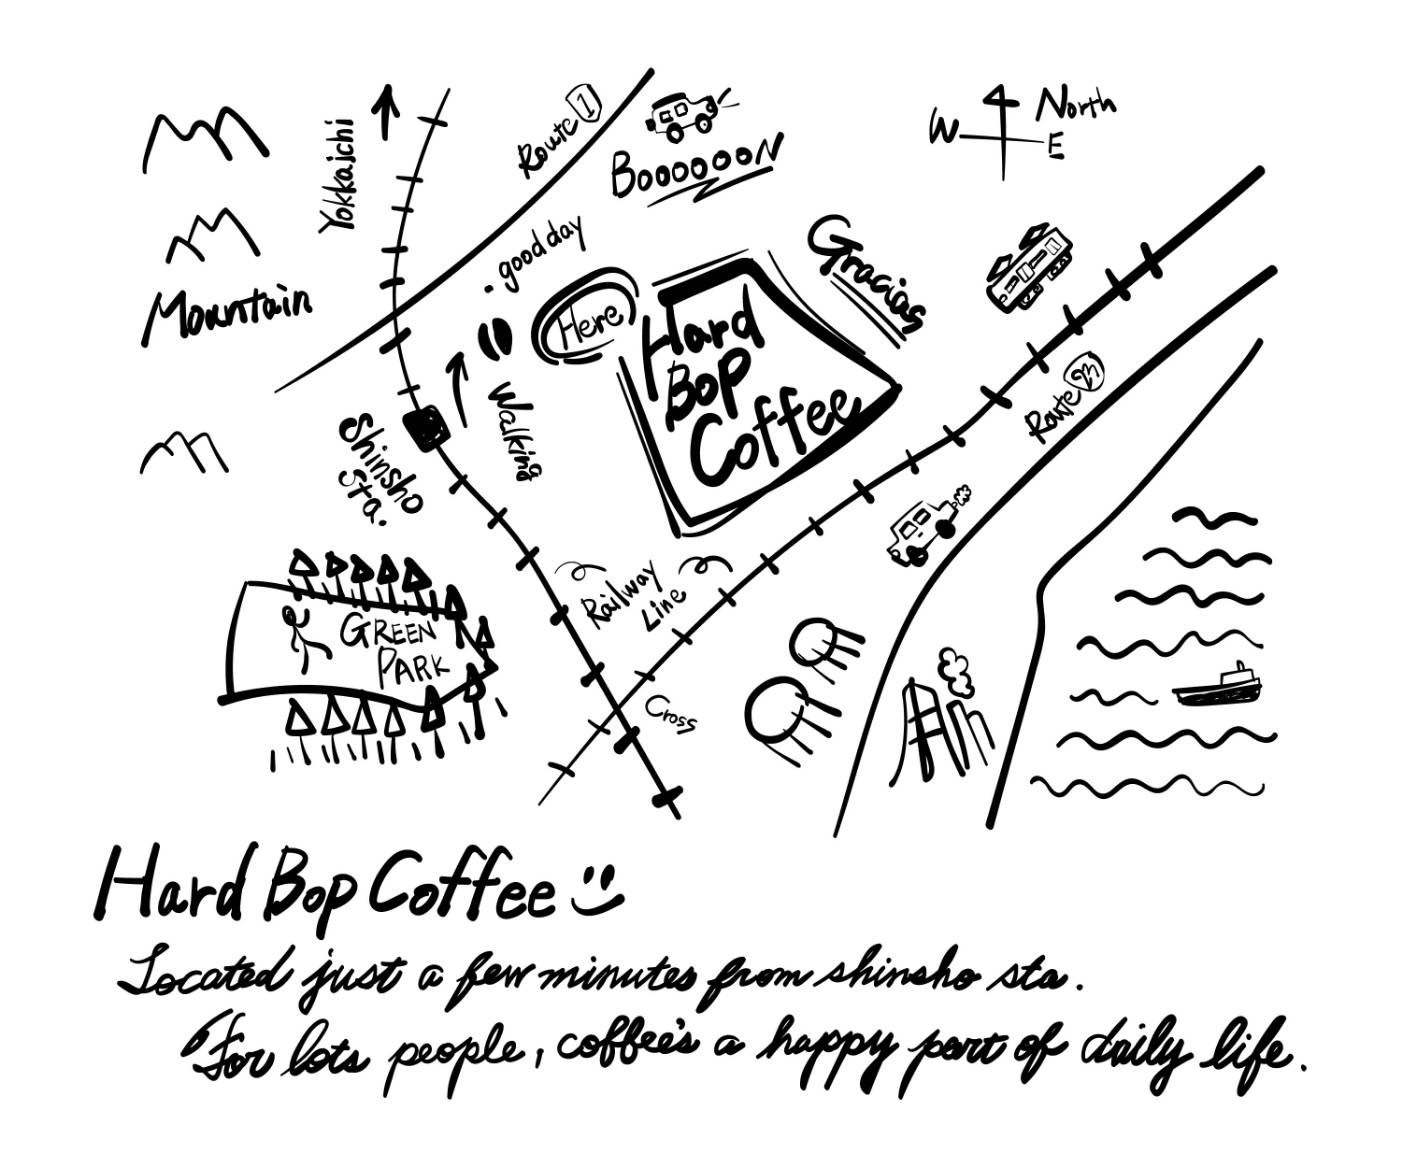 Yokkaichi
Route 1
BoooooON
North
W
E
Mountain
. good day
Here
Gracias
Hard
Bop
Coffee
Walking
Shinsho
Sta.
Route 23
Railway
Line
GREEN
PARK
Cross
Hard Bop Coffee
Located just a few minutes from shinsho sta.
For lots people, coffee's a happy part of daily life.